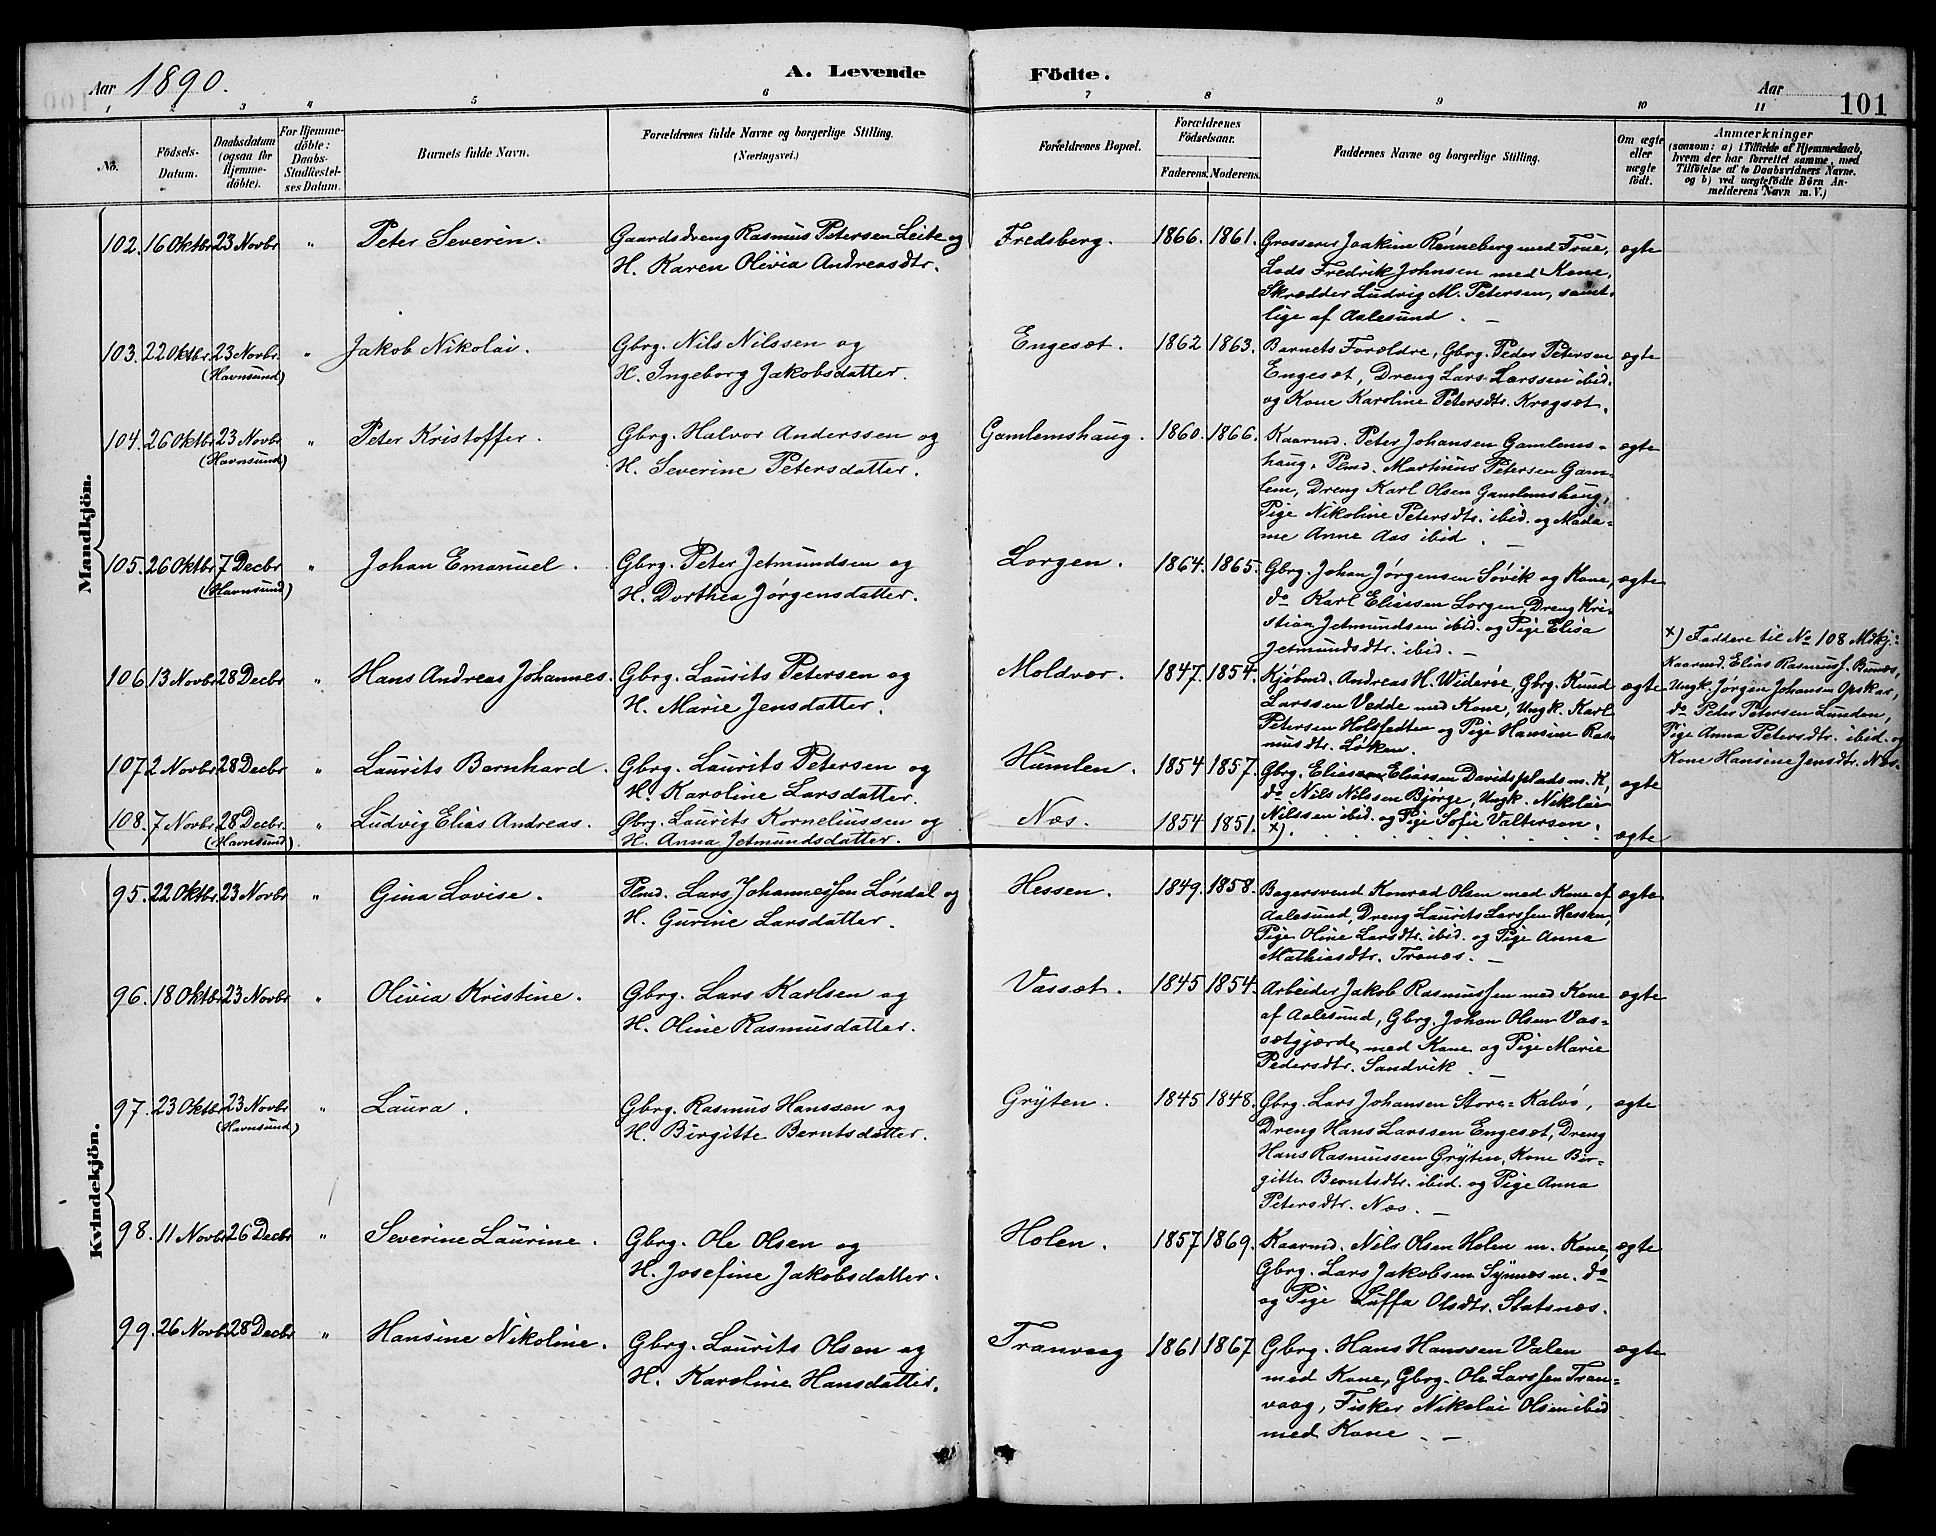 Aar 1890.
A. Levende Födte.
Aar
101
1 2 3 4 5 6 7 8 9 10 11
No.
Födsels-Datum.
Daabsdatum (ogsaa for Hjemmedöbte).
For Hjemmedöbte: Daabs-Stadfæstelses Datum.
Barnets fulde Navn.
Forældrenes fulde Navne og borgerlige Stilling. (Næringsvei.)
Forældrenes Bopæl.
Forældrenes Födselsaar.
Faderens. Moderens.
Faddernes Navne og borgerlige Stilling.
Om ægte eller uægte födt.
Anmærkninger
(saasom: a) i Tilfælde af Hjemmedaab,
hvem der har forrettet samme, med
Tilföielse af to Daabsvidners Navne.
og b) ved uægtefödte Börn An-
melderens Navn m. V.)
Mandkjön.
102. 16 Oktbr 23 Novbr " Peter Severin. Gaardsdreng Rasmus Petersen Leite og Fredsberg. 1866. 1861. Grosserer Joakim Rønneberg med Frue, ægte
H. Karen Olivia Andreasdtr. Lods Fredrik Johnsen med Kone,
Skrædder Ludvig M. Petersen, samt-
lige af Aalesund. —
103. 22 Oktbr. 23 Novbr. " Jakob Nikolai. Gbrg. Nils Nilssen og Engesæt. 1862 1863. Barnets Forældre, Gbrg. Peder Petersen ægte
(Havnsund) H. Ingeborg Jakobsdatter. Engesæt, Dreng Lars Larssen ibid.
og Kone Karoline Petersdtr. Krogsæt.
104. 26 Oktbr 23 Novbr " Peter Kristoffer. Gbrg. Halvor Anderssen og Gamlemshaug. 1860. 1866. Kaarmd. Peter Johansen Gamlems- ægte
(Havnsund) H. Severine Petersdatter. haug, Plmd. Martinus Petersen Gam-
lem, Dreng Karl Olsen Gamlemshaug,
Pige Nikoline Petersdtr. ibid. og Mada-
me Anne Aas ibid. —
105. 26 Oktbr 7 Decbr " Johan Emanuel. Gbrg. Peter Jetmundsen og Lorgen. 1864. 1865. Gbrg. Johan Jørgensen Søvik og Kone, ægte
(Havnsund) H. Dorthea Jørgensdatter. do Karl Eliassen Lorgen, Dreng Kri-
stian Jetmundsen ibid. og Pige Elisa
Jetmundsdtr. ibid. —
106. 13 Novbr 28 Decbr " Hans Andreas Johannes. Gbrg. Laurits Petersen og Moldvær. 1847. 1854. Kjøbmd. Andreas H. Widerøe, Gbrg. Knud ægte
H. Marie Jensdatter. Larssen Vedde med Kone, Ungk. Karl
Petersen Holsfedten og Pige Hansine Ras-
musdtr. Løken.
107. 2 Novbr 28 Decbr " Laurits Bernhard. Gbrg. Laurits Petersen og Humlen. 1854 1857. Gbrg. Elias Eliassen Davidsplads m. K, ægte
H. Karoline Larsdatter. do Nils Nilssen Bjørge, Ungk. Nikolai
Nilssen ibid. og Pige Sofie Valterson.
108. 7 Novbr 28 Decbr. " Ludvig Elias Andreas. Gbrg. Laurits Korneliussen og Næs. 1854 1851. x). ægte
(Havnsund) H. Anna Jetmundsdatter.
x) Faddere til No 108 Mdkj:
Kaarmd. Elias Rasmuss. Bunæs,
Ungk. Jørgen Johansen Opskar,
do Peter Petersen Lunden,
Pige Anna Petersdtr. ibid. og
Kone Hansine Jensdtr. Næs.
Kvindekjön.
95. 22 Oktbr 23 Novbr " Gina Lovise. Plmd. Lars Johannessen Løndal og Hessen. 1849. 1858. Bagersvend Konrad Olsen med Kone af ægte
H. Gurine Larsdatter. Aalesund, Dreng Laurits Larssen Hessen,
Pige Oline Larsdtr. ibid. og Pige Anna
Mathiasdtr. Tranæs. —
96. 18 Oktbr 23 Novbr " Olivia Kristine. Gbrg. Lars Karlsen og Vassæt. 1845 1854. Arbeider Jakob Rasmussen med Kone ægte
H. Oline Rasmusdatter. af Aalesund, Gbrg. Johan Olsen Vas-
sætgjærde med Kone og Pige Marie
Pedersdtr. Sandvik. —
97. 23 Oktbr 23 Novbr " Laura. Gbrg. Rasmus Hanssen og Gryten. 1845 1848. Gbrg. Lars Johansen Store-Kalvø, ægte
(Havnsund) H. Birgitte Berntsdatter. Dreng Hans Larssen Engesæt, Dreng
Hans Rasmussen Gryten, Kone Bir-
gitte Berntsdtr. ibid. og Pige Anna
Petersdtr. Næs. —
98. 11 Novbr 26 Decbr " Severine Laurine. Gbrg. Ole Olsen og Holen. 1857 1869. Kaarmd. Nils Olsen Holen m. Kone, ægte
H. Josefine Jakobsdatter. Gbrg. Lars Jakobsen Synnæs m. do
og Pige Luffa Olsdtr. Slatsnæs.
99. 26 Novbr 28 Decbr " Hansine Nikoline. Gbrg. Laurits Olsen og Tranvaag 1861 1867 Gbrg. Hans Hanssen Valen ægte
H. Karoline Hansdatter. med Kone, Gbrg. Ole Larssen Tran-
vaag, Fisker Nikolai Olsen ibid
med Kone. —